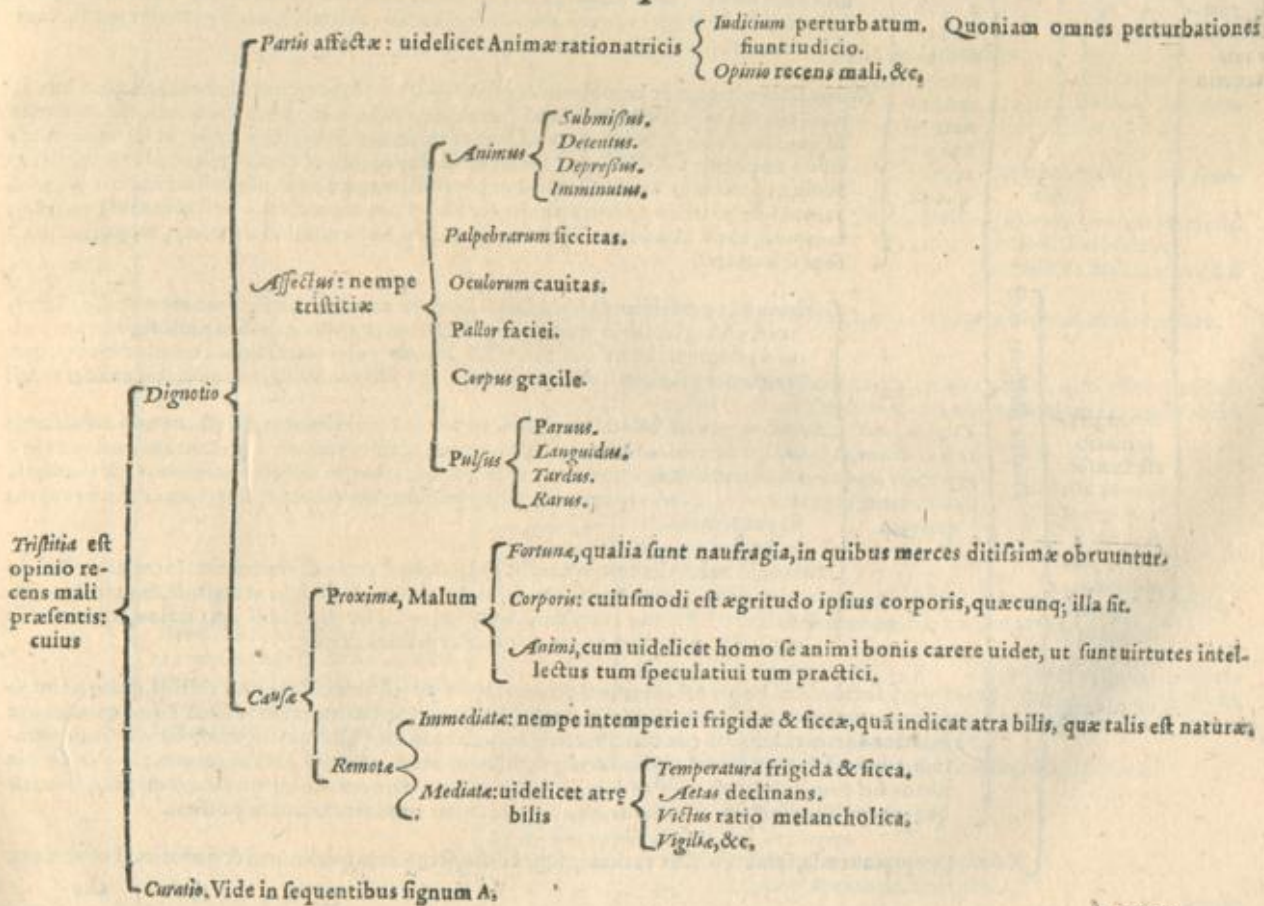 Partis affectæ: uidelicet Animæ rationatricis
Iudicium perturbatum. Quoniam omnes perturbationes
fiunt iudicio.
Opinio recens mali, &c,
Affectus: nempe
tristitiæ
Animus
Submißus.
Detentus.
Depreßus.
Imminutus.
Palpebrarum siccitas.
Oculorum cauitas.
Pallor faciei.
Corpus gracile.
Pulsus
Paruus.
Languidus.
Tardus.
Rarus.
Dignotio
Tristitia est
opinio re-
cens mali
præsentis:
cuius
Causæ
Proximæ, Malum
Fortunæ, qualia sunt naufragia, in quibus merces ditissimæ obruuntur.
Corporis: cuiusmodi est ægritudo ipsius corporis, quæcunq; illa sit.
Animi, cum uidelicet homo se animi bonis carere uidet, ut sunt uirtutes intel-
lectus tum speculatiui tum practici.
Remotæ
Immediatæ: nempe intemperiei frigidæ & siccæ, quā indicat atra bilis, quæ talis est naturæ.
Mediatæ: uidelicet atrę
bilis
Temperatura frigida & sicca.
Aetas declinans.
Victus ratio melancholica.
Vigiliæ, &c.
Curatio. Vide in sequentibus signum A.